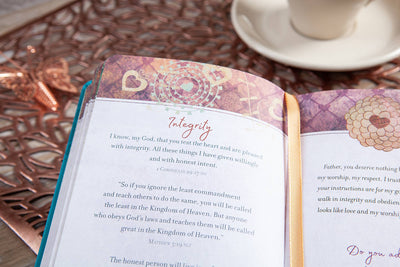 Integrity
I know, my God, that you test the heart and are pleased
with integrity. All these things I have given willingly
and with honest intent.
1 Chronicles 29:17 NIV
"So if you ignore the least commandment
and teach others to do the same, you will be called
the least in the Kingdom of Heaven. But anyone
who obeys God's laws and teaches them will be called
great in the Kingdom of Heaven."
Matthew 5:19 NLT
The honest person will
Father, you deserve nothing l
my worship, my respect. I trust
your instructions are for my go
walk in integrity and obedien
looks like love and my worship
Do you ad